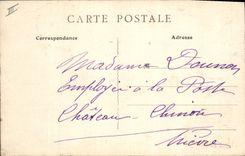 III
CARTE POSTALE
Correspondance
Adresse
Madame
Employée à la Poste
Château-Chinon
Nièvre